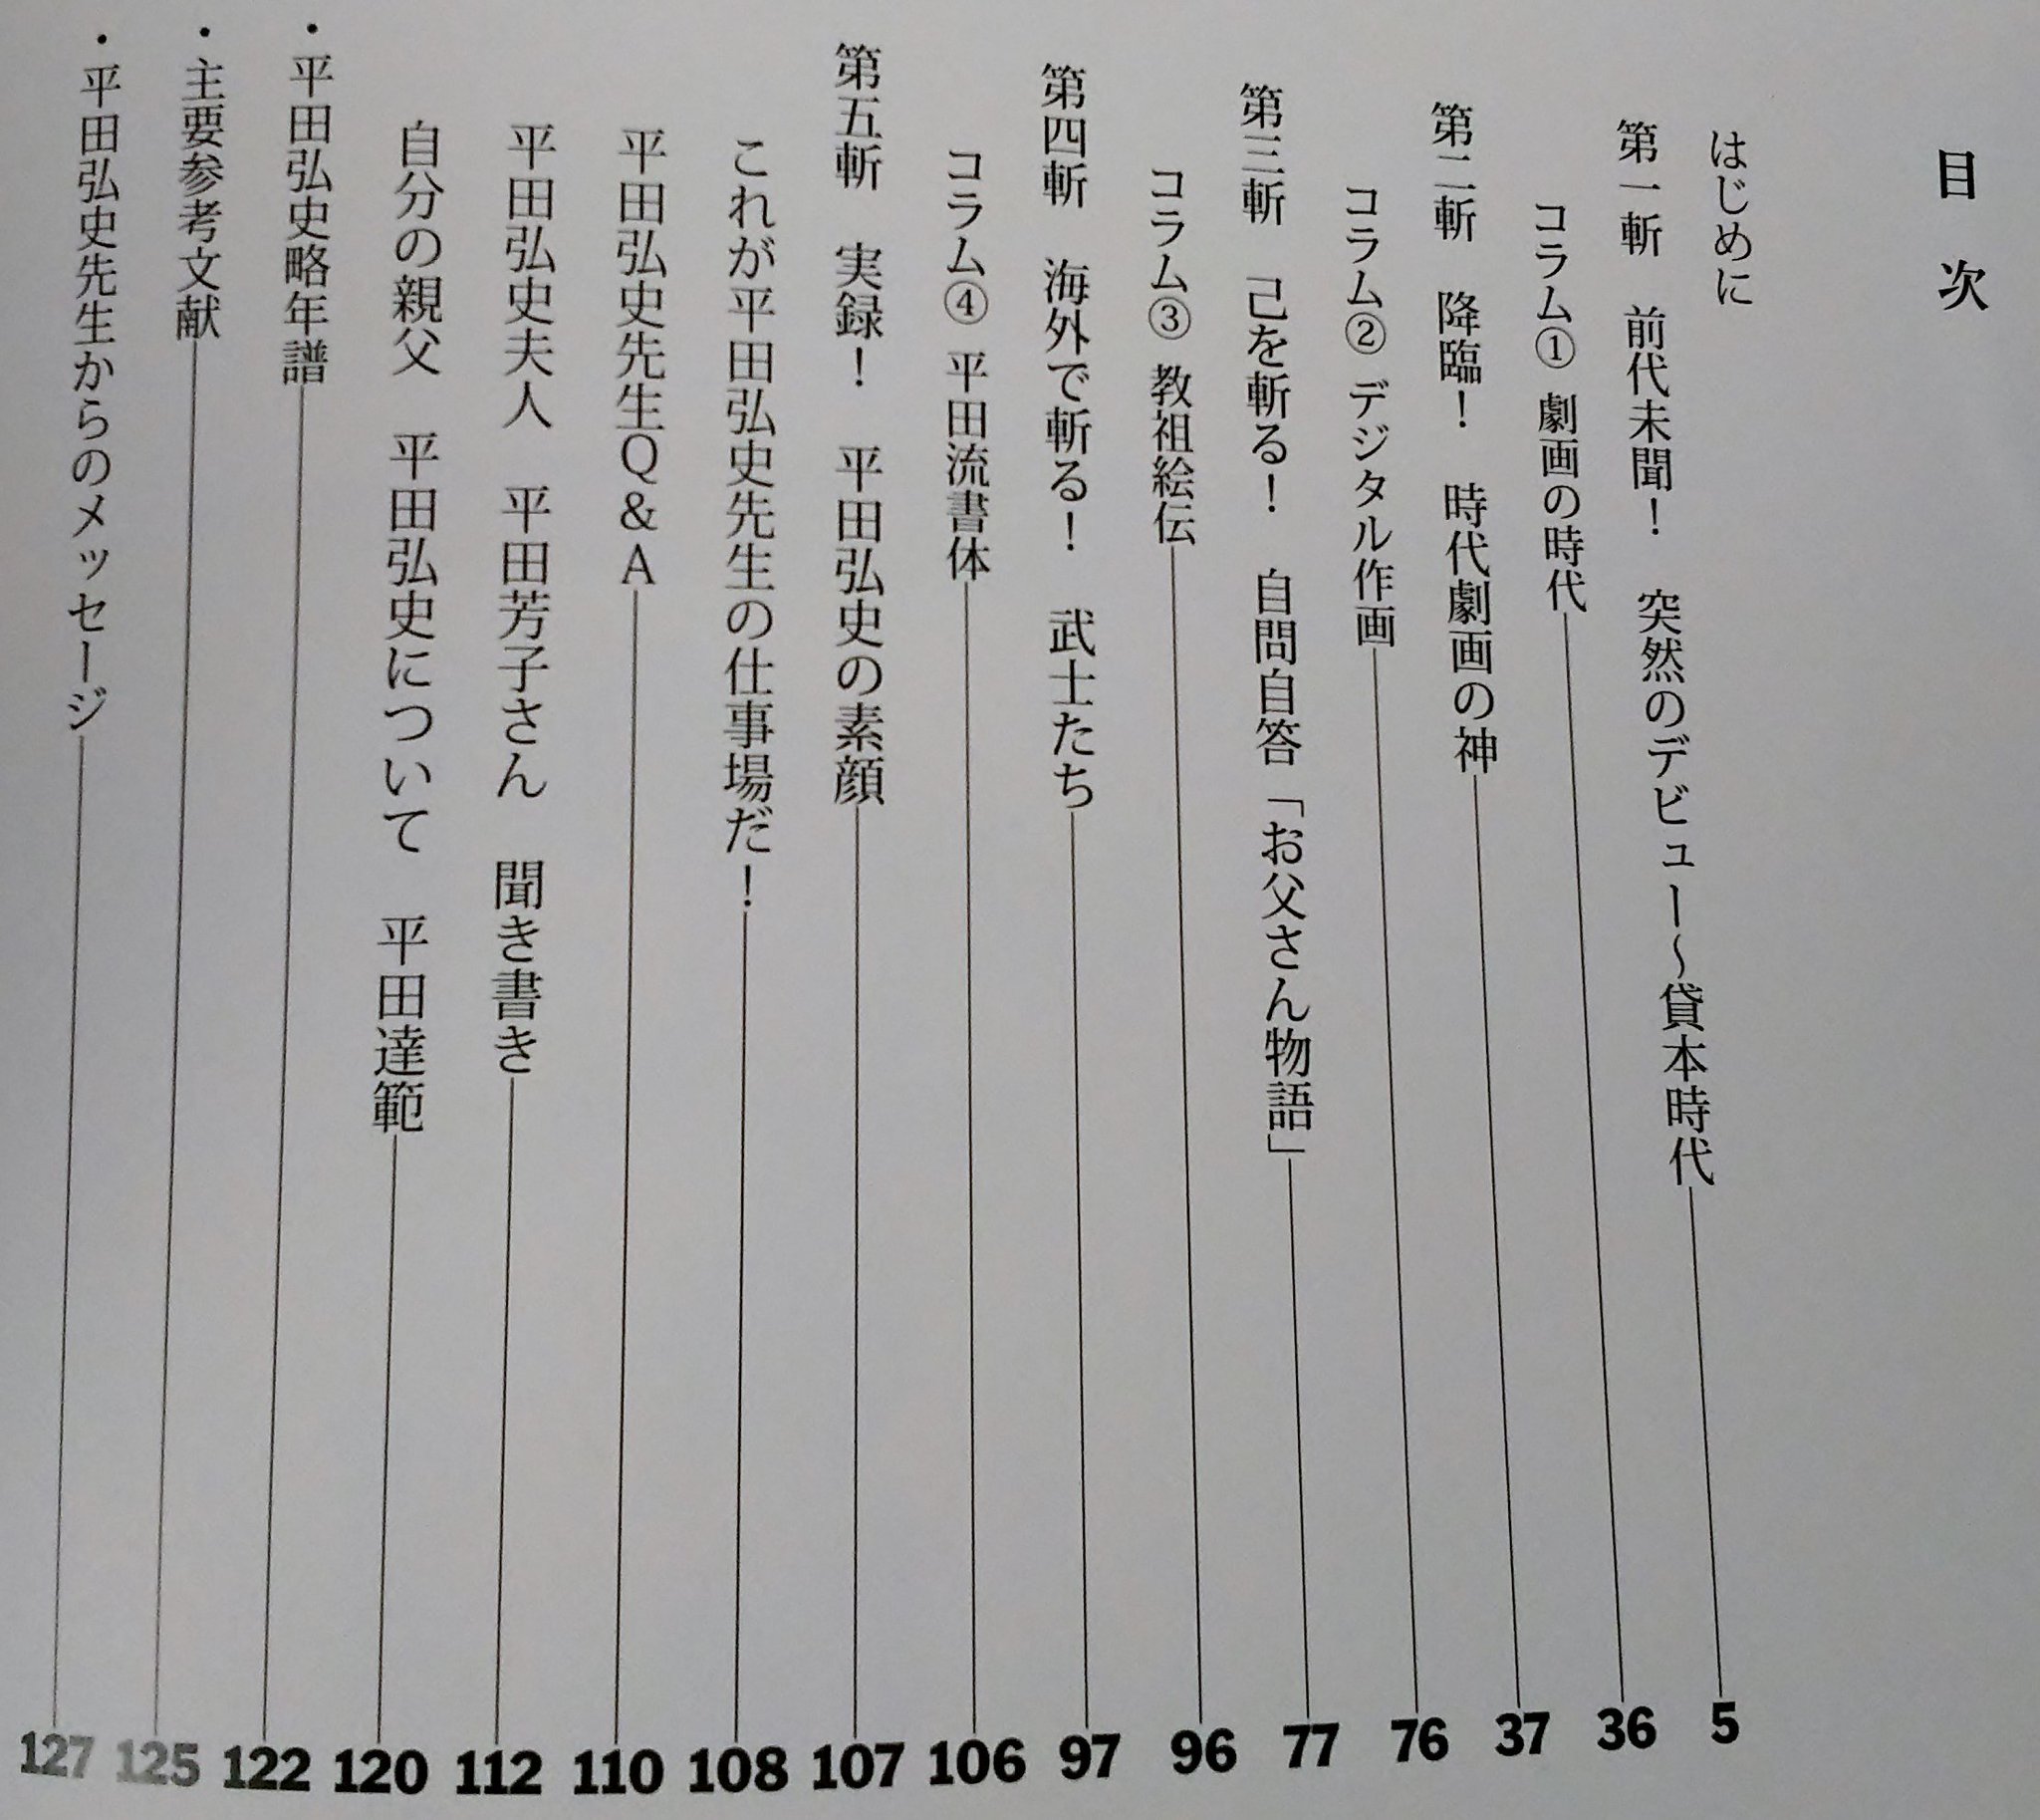 目次
はじめに
第一斬　前代未聞！　突然のデビュー〜貸本時代 5
コラム① 劇画の時代 36
第二斬　降臨！　時代劇画の神 37
コラム② デジタル作画 76
第三斬　己を斬る！　自問自答「お父さん物語」 77
コラム③ 教祖絵伝 96
第四斬　海外で斬る！　武士たち 97
コラム④ 平田流書体 106
第五斬　実録！　平田弘史の素顔 107
これが平田弘史先生の仕事場だ！ 108
平田弘史先生Q&A 110
平田弘史夫人　平田芳子さん　聞き書き 112
自分の親父　平田弘史について　平田達範 120
・平田弘史略年譜 122
・主要参考文献 125
・平田弘史先生からのメッセージ 127